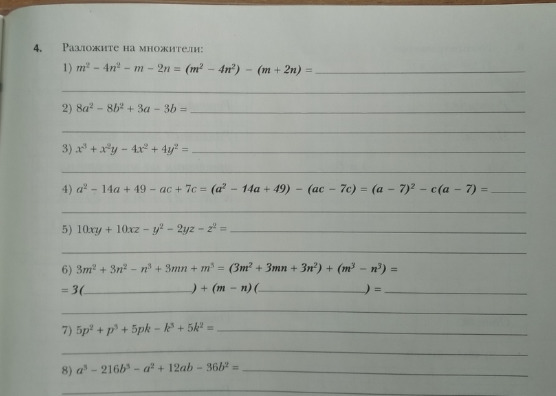 4. Разложите на множители:
1) m² – 4n² – m – 2n = (m² – 4n²) – (m + 2n) =
2) 8a² – 8b² + 3a – 3b =
3) x³ + x²y – 4x² + 4y² =
4) a² – 14a + 49 – ac + 7c = (a² – 14a + 49) – (ac – 7c) = (a – 7)² – c(a – 7) =
5) 10xy + 10xz – y² – 2yz – z² =
6) 3m² + 3n² – n³ + 3mn + m³ = (3m² + 3mn + 3n²) + (m³ – n³) =
= 3( ) + (m – n)( ) =
7) 5p² + p³ + 5pk – k³ + 5k² =
8) a³ – 216b³ – a² + 12ab – 36b² =